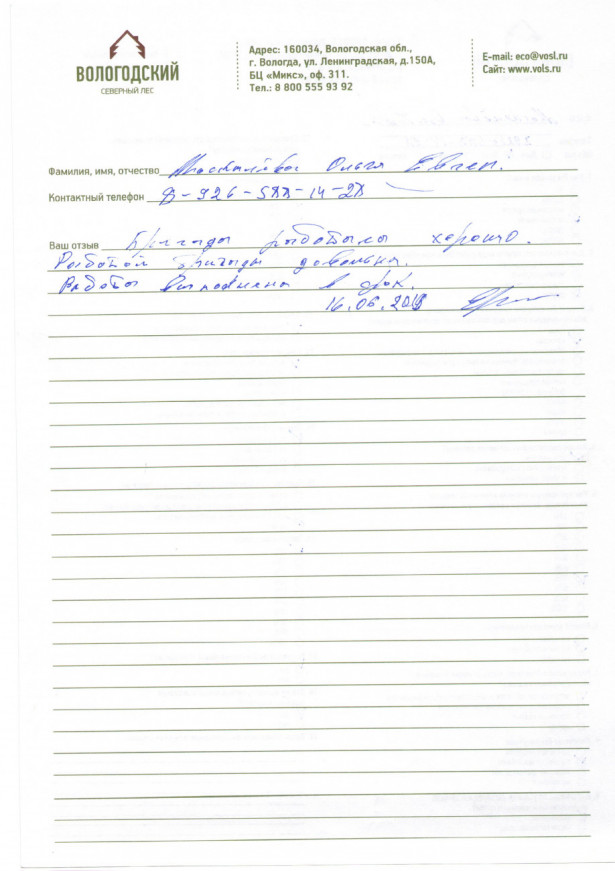 ВОЛОГОДСКИЙ
СЕВЕРНЫЙ ЛЕС
Адрес: 160034, Вологодская обл.,
г. Вологда, ул. Ленинградская, д.150А,
БЦ «Микс», оф. 311.
Тел.: 8 800 555 93 92
E-mail: eco@vosl.ru
Сайт: www.vols.ru
Фамилия, имя, отчество Ольга
Контактный телефон 8-926-
Ваш отзыв Бригада работала хорошо.
Работой бригады довольна.
Работы выполнены в срок.
16.06.2019